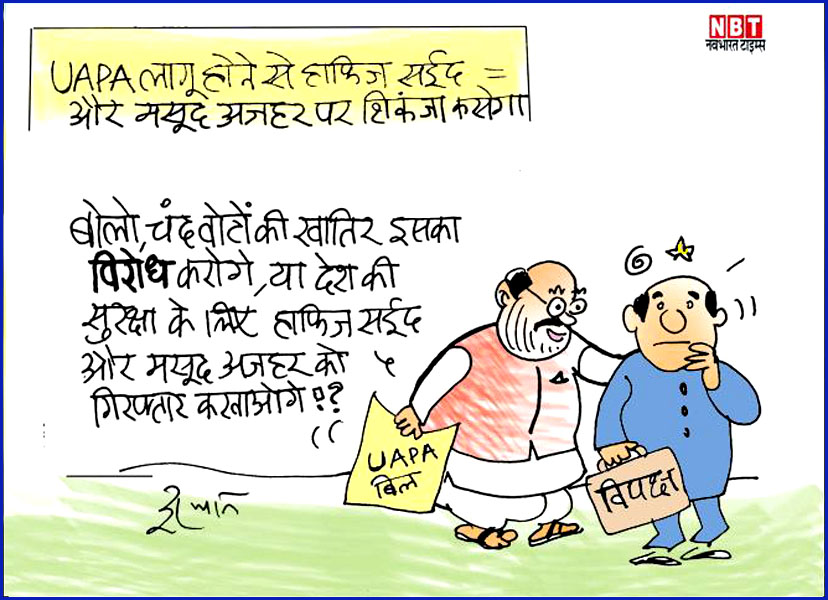 NBT
नवभारत टाइम्स
UAPA लागू होने से हाफिज सईद =
और मसूद अजहर पर शिकंजा कसेगा
बोलो, चंद वोटों की खातिर इसका
विरोध करोगे, या देश की
सुरक्षा के लिए हाफिज सईद
और मसूद अजहर को
गिरफ्तार करवाओगे ??
UAPA
बिल
विपक्ष